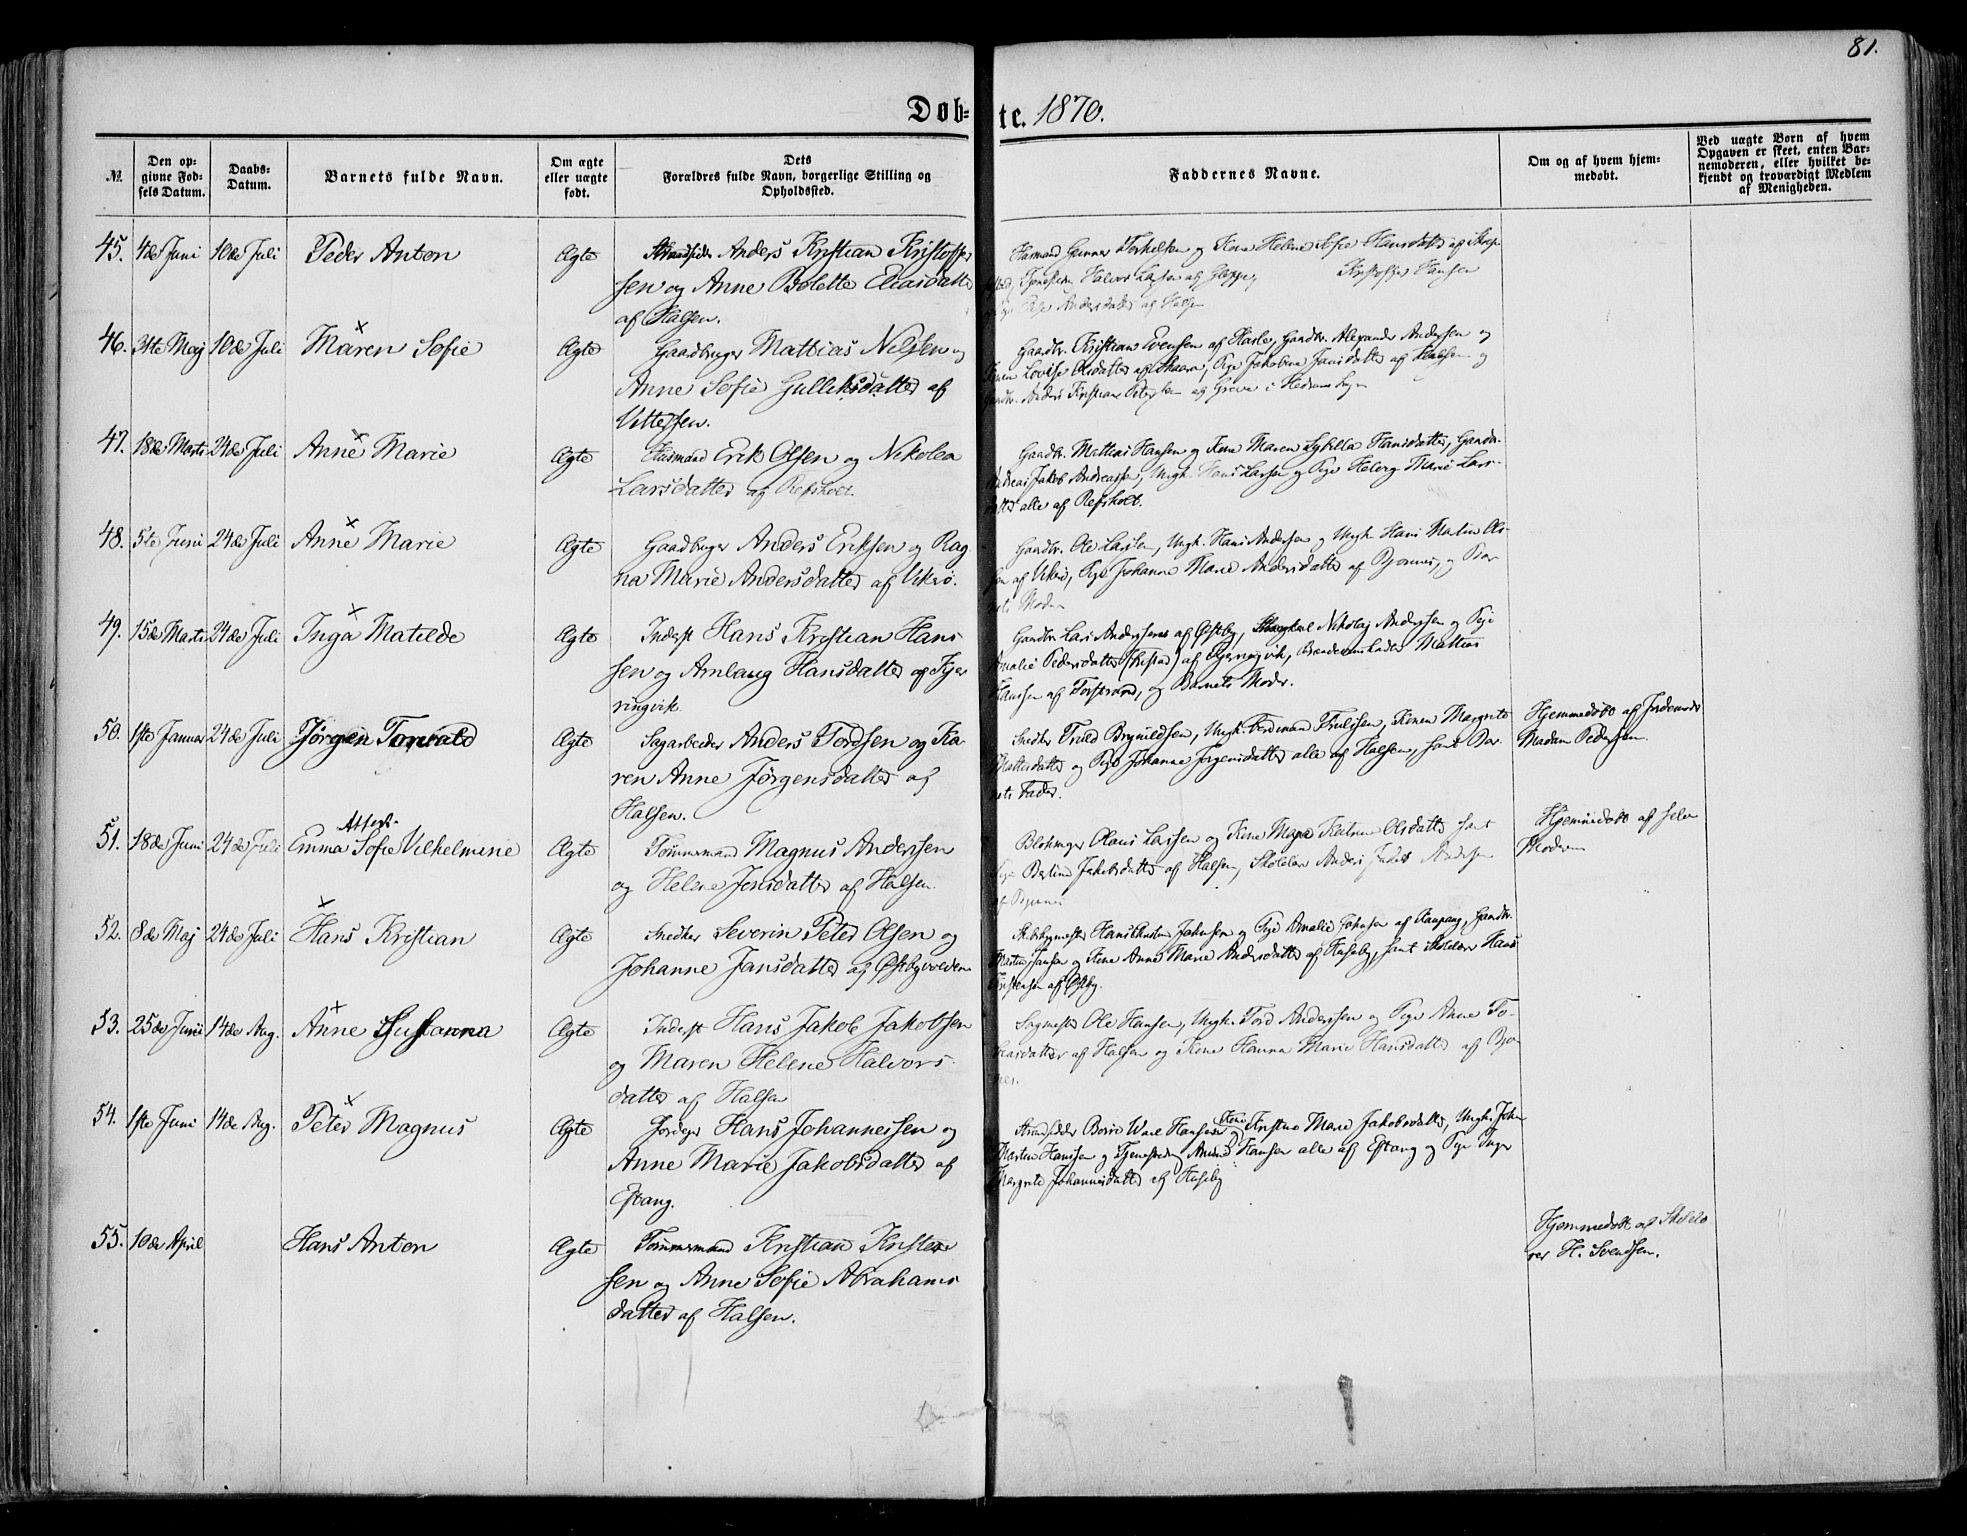 81.
Døb= te. 1870.
№.
Den op=
givne Fød=
sels Datum.
Daabs=
Datum.
Barnets fulde Navn.
Om ægte
eller uægte
født.
Dets
Forældres fulde Navn, borgerlige Stilling og
Opholdssted.
Faddernes Navne.
Om og af hvem hjem=
medøbt.
Ved uægte Børn af hvem
Opgaven er skeet, enten Bar=
nemoderen, eller hvilket be=
kjendt og troværdigt Medlem
af Menigheden.
45. 4de Juni 10de Juli Peder Anton Ægte Strandsider Anders Kristian Kristoffer
sen og Anne Bolette Eliasdatter
af Halsen.
Husmand Gunner Torkelsen og Kone Helene Sofie Hansdatter af
Halvor Larsen af Kristoffer Hansen
Pige Andersdatter af Halsen
46. 31te Maj 10de Juli Maren Sofie Ægte Gaardbruger Mattias Nilsen og
Anne Sofie Gulliksdatter af
Vittersen.
Gaardbr. Kristian Evensen af Hasle, Gaardbr. Alexander Andersen og
Lovise Olsdatter af Skaara, Pige Jakobine Jansdatter af Halsen og
Gaardbr. Anders Kristian Petersen af Greve i Hedrum Sogn
47. 18de Marts 24de Juli Anne Marie Ægte Husmand Erik Olsen og Nikolea
Larsdatter af Refsholt.
Gaardbr. Mattias Hansen og Kone Maren Sybilla Hansdatter, Gaardbr.
Andreas Jakob Andreassen, Ungk. Hans Larsen og Pige Helvig Marie Lars-
datter alle af Refsholt.
48. 5te Juni 24de Juli Anne Marie Ægte Gaardbruger Anders Eriksen og Rag
na Marie Andersdatter af Vikrø.
Gaardbr. Ole Larsen, Ungk. Hans Andersen og Ungk. Hans Martin Ol-
sen af Vikrø, Pige Johanne Marie Andersdatter af Bjønnes, og Bar
nets Moder
49. 15de Marts 24de Juli Inga Matilde Ægte Inderst Hans Kristian Han
sen og Amlaug Hansdatter af Kjer
ringvik.
Gaardbr. Lars Anderssen af Østby, Nikolaj Andersen og Pige
Amalie Pedersdatter af Kjerringvik, Mattias
Hansen af Torstrand, og Barnets Moder.
50. 1ste Januar 24de Juli Jørgen Torvald Ægte Sagarbeider Anders Tordsen og Ka-
ren Anne Jørgensdatter af
Halsen.
Snedker Truls Brynildsen, Ungk. Ferdinand Trulsen, Konen Margrete
Mattisdatter og Pige Johanne Jørgensdatter alle af Halsen, samt Bar
nets Fader.
Hjemmedøbt af Jordemoder
Madam Pedersen.
Attest.
51. 18de Juni 24de Juli Emma Sofie Vilhelmine Ægte Tømmermand Magnus Anderssen
og Helene Jensdatter af Halsen.
Olaus Larsen og Kone Maria Katrine Olsdatter samt
Pige Berline Jakobsdatter af Halsen, Skolelær Anders Andersen
Hjemmedøbt af selve
Moderen
52. 8de Maj 24de Juli Hans Kristian Ægte Snedker Severin Peter Olsen og
Johanne Jansdatter af Østbyvolden
Skibsbygmester Hans Christian Johnsen og Pige Amalie Johnsen af Kaupang, Gaardbr.
Martin Jansen og Kone Anne Marie Andersdatter af Huseby, samt Skolelær Hans
Kristensen af Østby.
53. 25de Juni 14de Aug. Anne Susanna Ægte Inderst Hans Jakob Jakobsen
og Maren Helene Halvors
datter af Halsen
Sagmester Ole Hansen, Ungk. Tord Anderssen og Pige Anne To-
biasdatter af Halsen og Kone Hanna Marie Hansdatter af Bjøn
nes.
54. 1ste Juni 14de Aug. Peter Magnus Ægte Jordejer Hans Johannessen og
Anne Marie Jakobsdatter af
Eftang.
Strandsidder Børre Hansen Kone Kristine Marie Jakobsdatter, Ungk. John
Martin Hansen og Hansen alle af Eftang og Pige Inger
Margrete Johannesdatter af Huseby
55. 10de April Hans Anton Ægte Tømmermand Kristian Kristen
sen og Anne Sofie Abrahams
datter af Halsen.
Hjemmedøbt af Skolelæ
rer H. Svendsen.